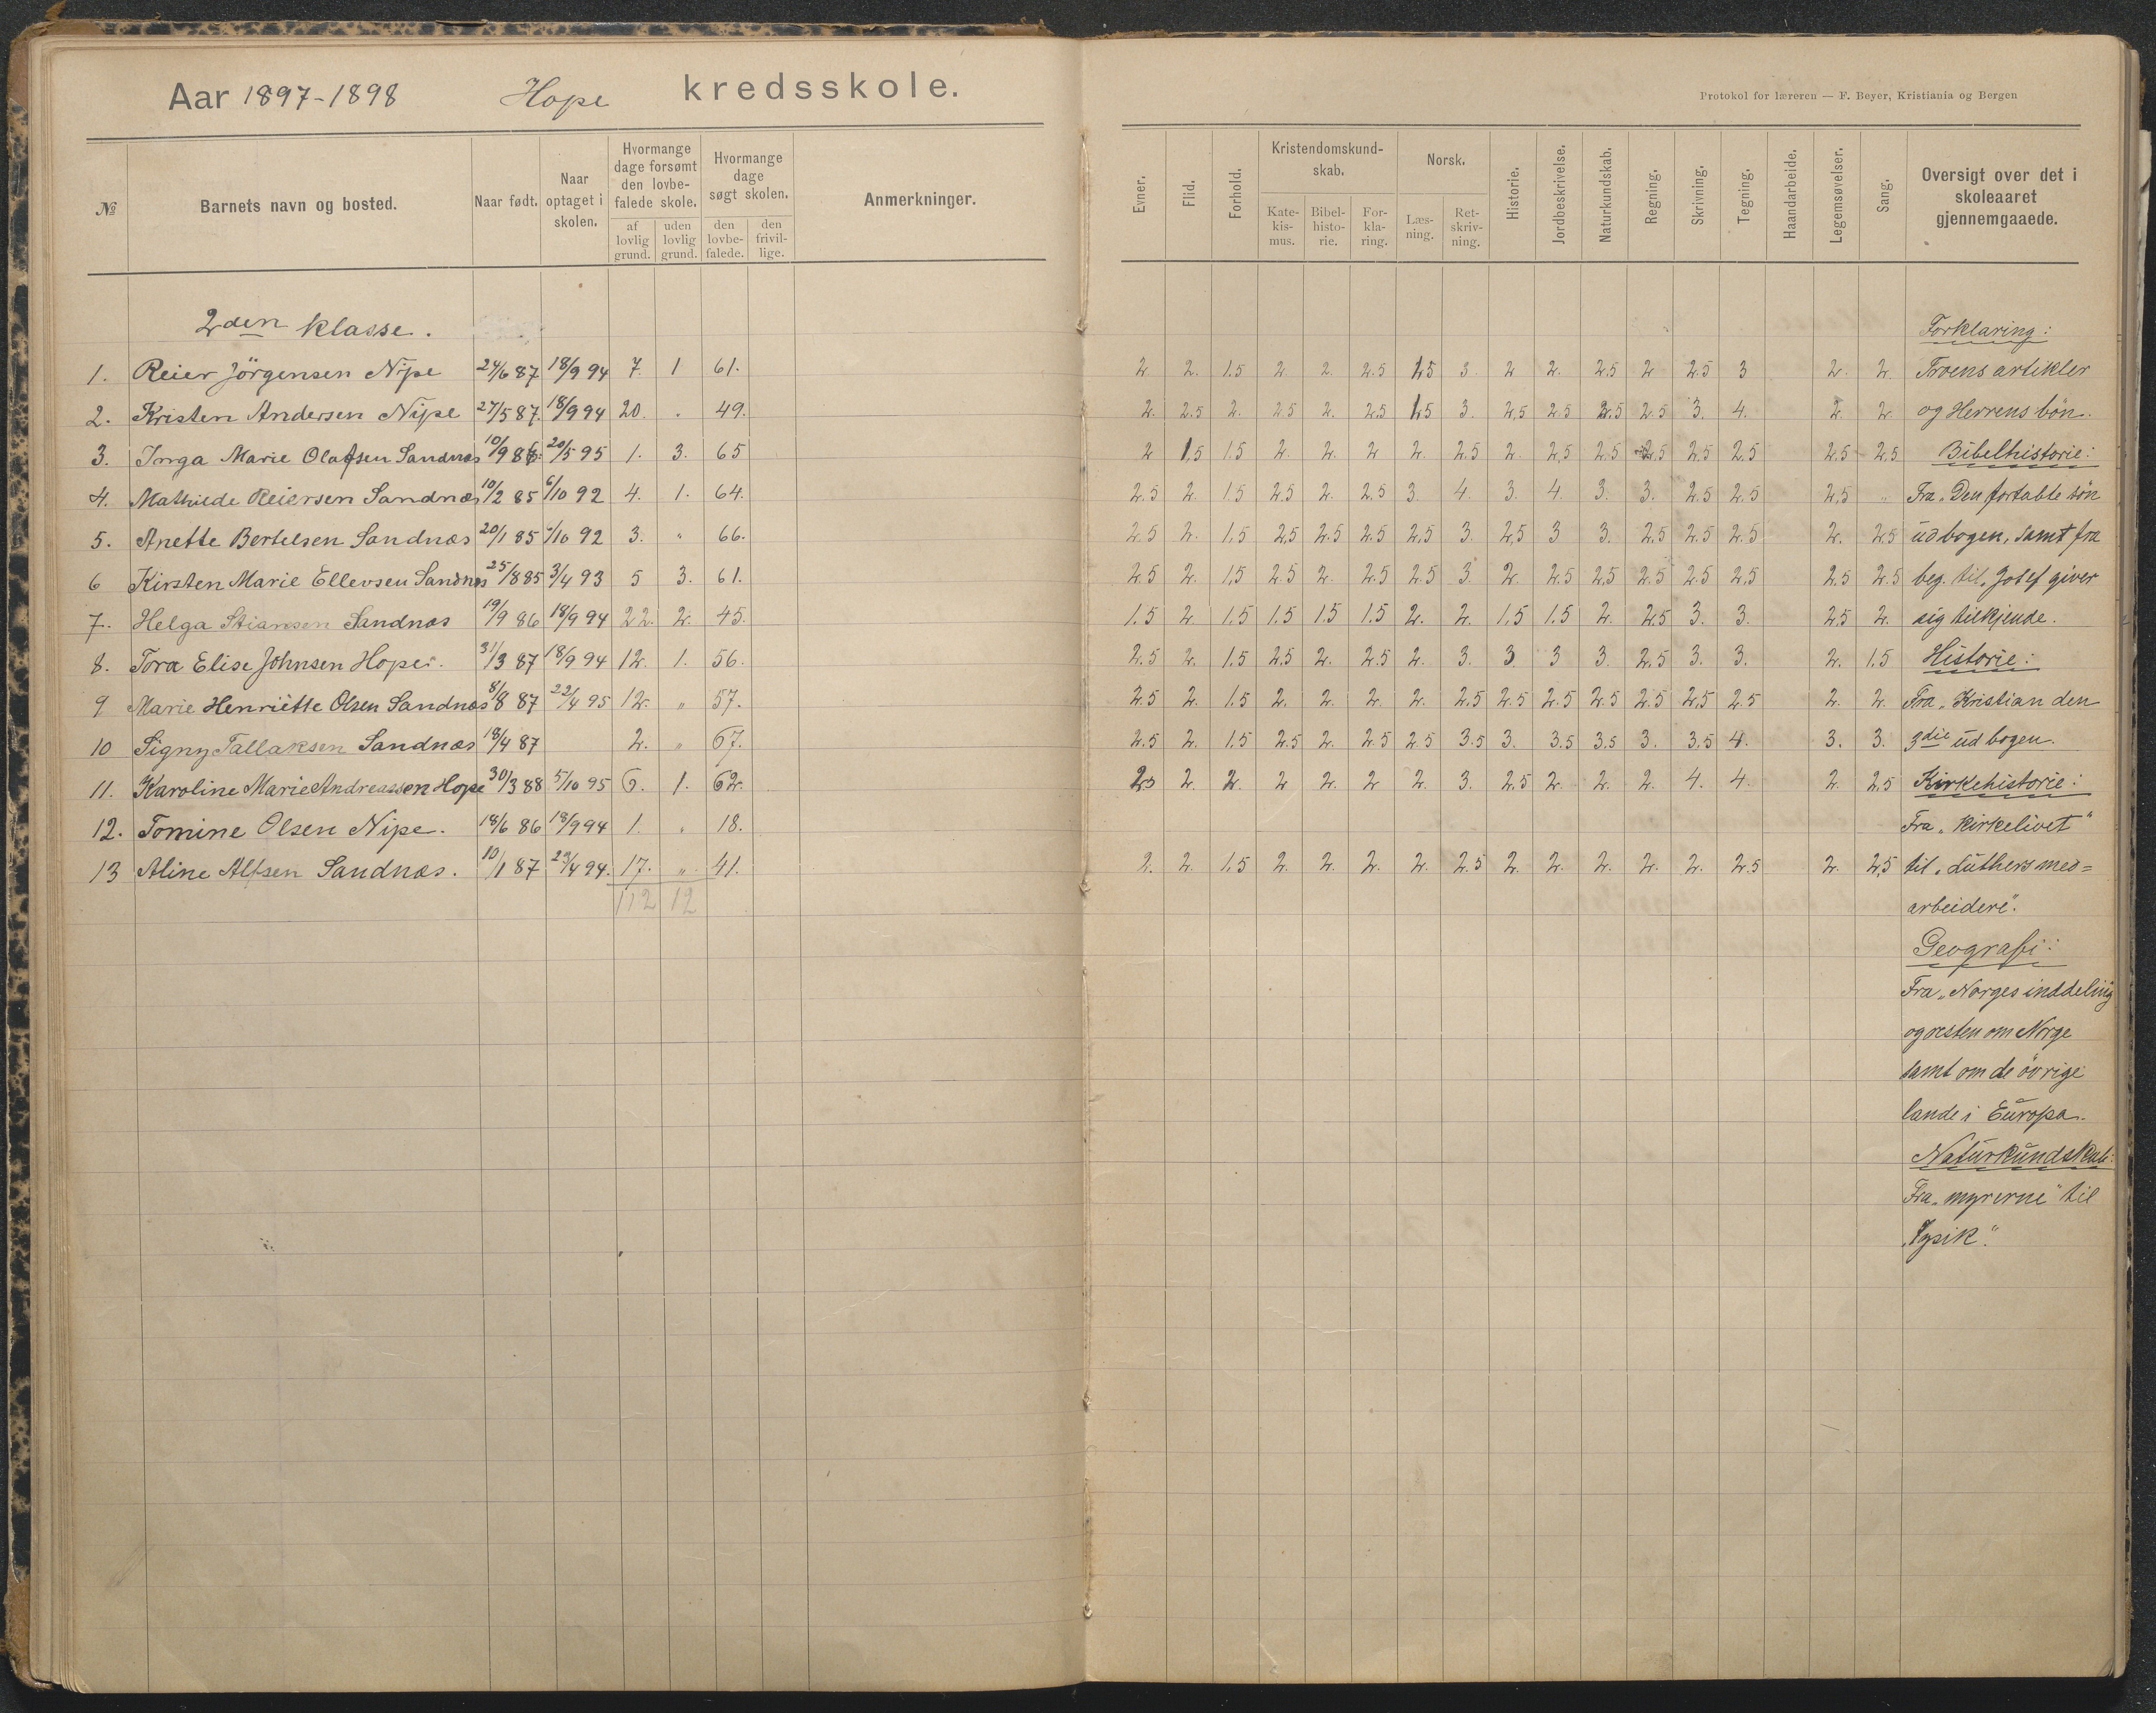 Aar 1897-1898 Hope kredsskole.
№ Barnets navn og bosted. Naar født. Naar optaget i skolen. Hvormange dage forsømt den lovbefalede skole. af lovlig grund. uden lovlig grund. Hvormange dage søgt skolen. den lovbefalede. den frivillige. Anmerkninger.
2den klasse.
1. Reier Jörgensen Nipe 24/6 87 18/9 94 7. 1 61.
2. Kristen Andersen Nipe 27/5 87. 18/9 94 20. " 49.
3. Inga Marie Olafsen Sandnæs 10/9 86. 20/5 95 1. 3. 65
4. Mathilde Reiersen Sandnæs 10/2 85 6/10 92 4. 1. 64.
5. Anette Bertelsen Sandnæs 20/1 85 6/10 92 3. " 66.
6 Kirsten Marie Ellevsen Sandnæs 25/8 85 3/4 93 5 3. 61.
7. Helga Stiansen Sandnæs 19/9 86 18/9 94 22. 2. 45.
8. Tora Elise Johnsen Hope. 31/3 87 18/9 94 12. 1. 56.
9 Marie Henriette Olsen Sandnæs 8/8 87 22/4 95 12. " 57.
10 Signy Tallaksen Sandnæs 18/4 87 2. " 67.
11. Karoline Marie Andreassen Hope 30/3 88 5/10 95 6. 1. 62.
12. Tomine Olsen Nipe. 18/6 86 18/9 94 1. " 18.
13 Aline Alfsen Sandnæs. 10/1 87 23/4 94. 17. " 41.
112 12
Protokol for læreren — F. Beyer, Kristiania og Bergen
Evner. Flid. Forhold. Kristendomskundskab. Katekismus. Bibelhistorie. Forklaring. Norsk. Læsning. Retskrivning. Historie. Jordbeskrivelse. Naturkundskab. Regning. Skrivning. Tegning. Haandarbeide. Legemsøvelser. Sang. Oversigt over det i skoleaaret gjennemgaaede.
Forklaring:
2 2. 1.5 2. 2. 2.5 1.5 3. 2 2. 2.5 2 2.5 3 2. 2. Troens artikler
2. 2.5 2. 2.5 2. 2.5 1.5 3. 2,5 2.5 2.5 2.5 3. 4. 2. 2 og Herrens bön.
2 1,5 1.5 2. 2. 2 2. 2.5 2. 2,5 2.5 2.5 2.5 2.5 2.5 2.5 Bibelhistorie:
2.5 2. 1.5 2.5 2. 2.5 3. 4. 3. 4. 3. 3. 2.5 2.5 2,5 " Fra „Den fortabte sön
2.5 2. 1,5 2,5 2.5 2.5 2,5 3. 2,5 3 3. 2.5 2.5 2.5 2. 2.5 ud bogen, samt fra
2.5 2. 1,5 2.5 2. 2.5 2.5 3. 2. 2.5 2.5 2.5 2.5 2,5 2.5 2.5 beg. til „Josef giver
1.5 2. 1.5 1.5 1.5 1.5 2. 2. 1.5 1.5 2. 2.5 3. 3. 2.5 2. sig tilkjende.
2.5 2. 1.5 2.5 2. 2.5 2. 3. 3 3 3. 2.5 3. 3. 2. 1.5 Historie:
2.5 2. 1.5 2. 2. 2. 2. 2.5 2.5 2.5 2.5 2.5 2,5 2.5 2. 2. Fra „Kristian den
2.5 2. 1.5 2.5 2. 2.5 2.5 3.5 3. 3.5 3.5 3. 3.5 4. 3. 3. 3die ud bogen.
2.5 2. 2. 2 2. 2 2. 3. 2.5 2. 2. 2. 4. 4. 2. 2.5 Kirkehistorie:
Fra „kirkelivet"
2. 2. 1.5 2. 2. 2. 2. 2.5 2. 2. 2. 2. 2. 2.5 2. 2.5 til „Luthers med=
arbeidere".
Geografi:
Fra „Norges inddeling
og resten om Norge
samt om de övrige
lande i Europa.
Naturkundskab:
Fra „myrerne" til
„fysik".